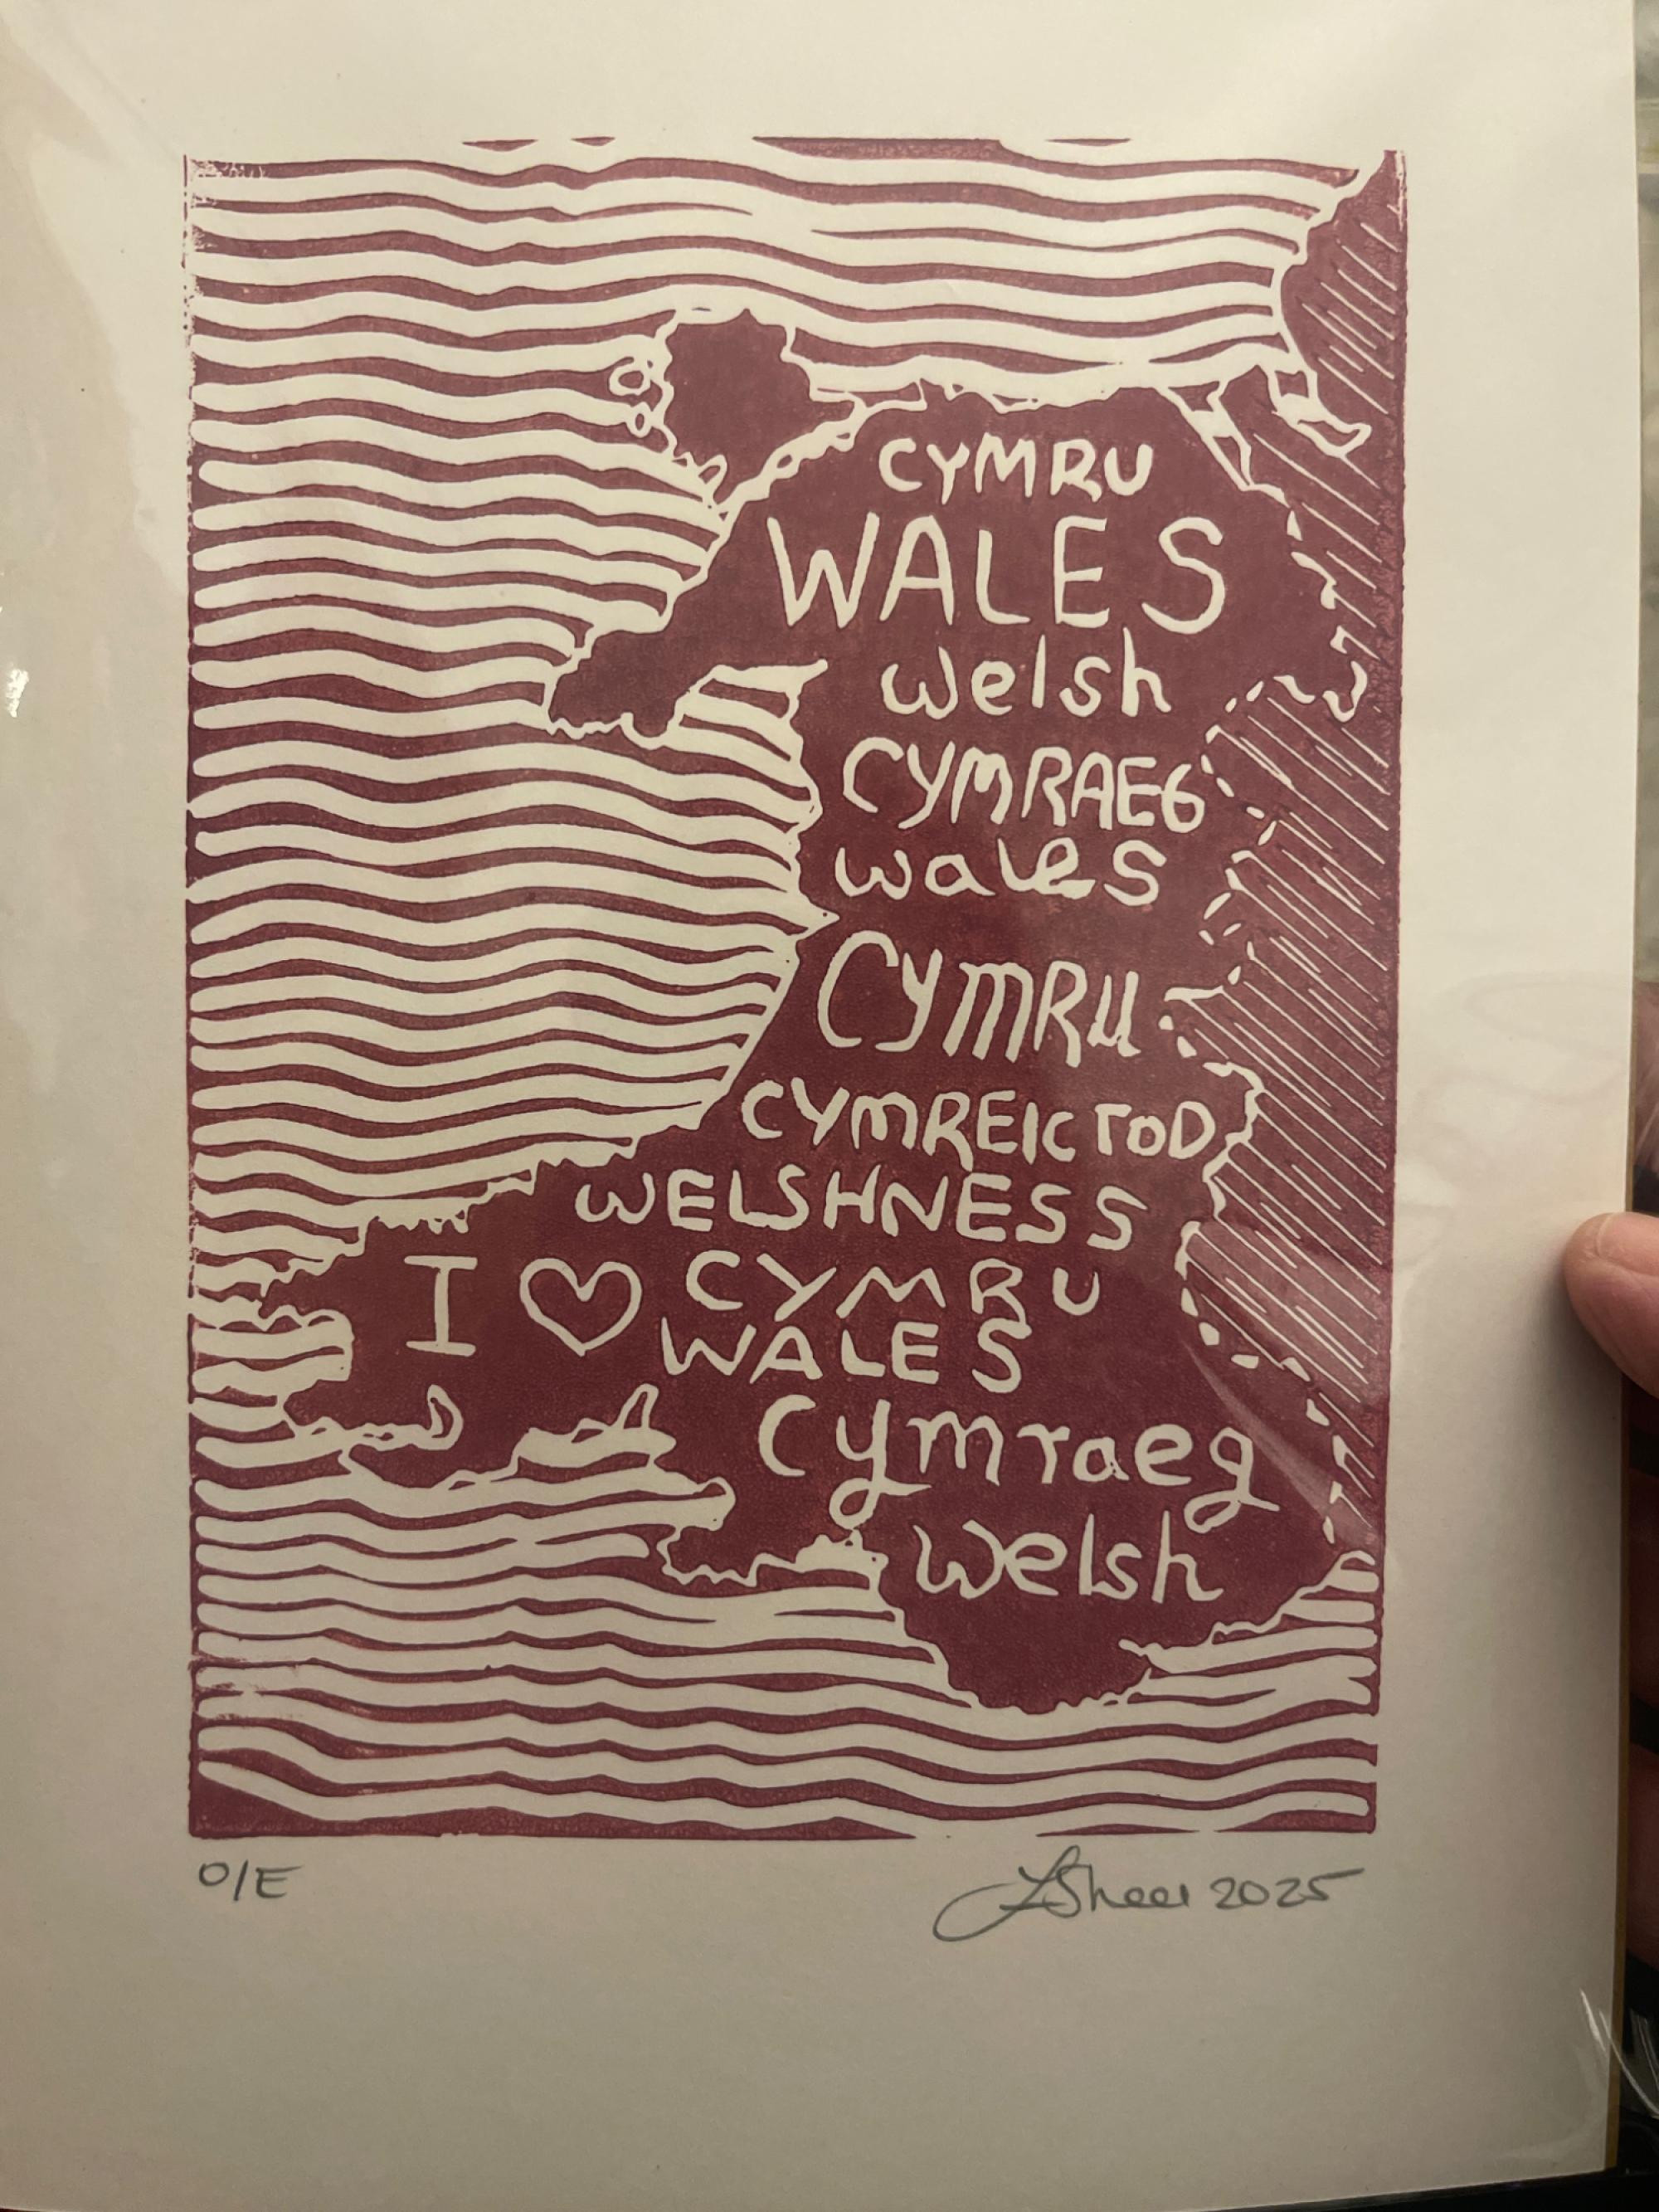 CYMRU
WALES
welsh
CYMRAEG
wales
CYMRU
CYMREICTOD
WELSHNESS
I ♡ CYMRU
WALES
Cymraeg
Welsh
O/E
2025